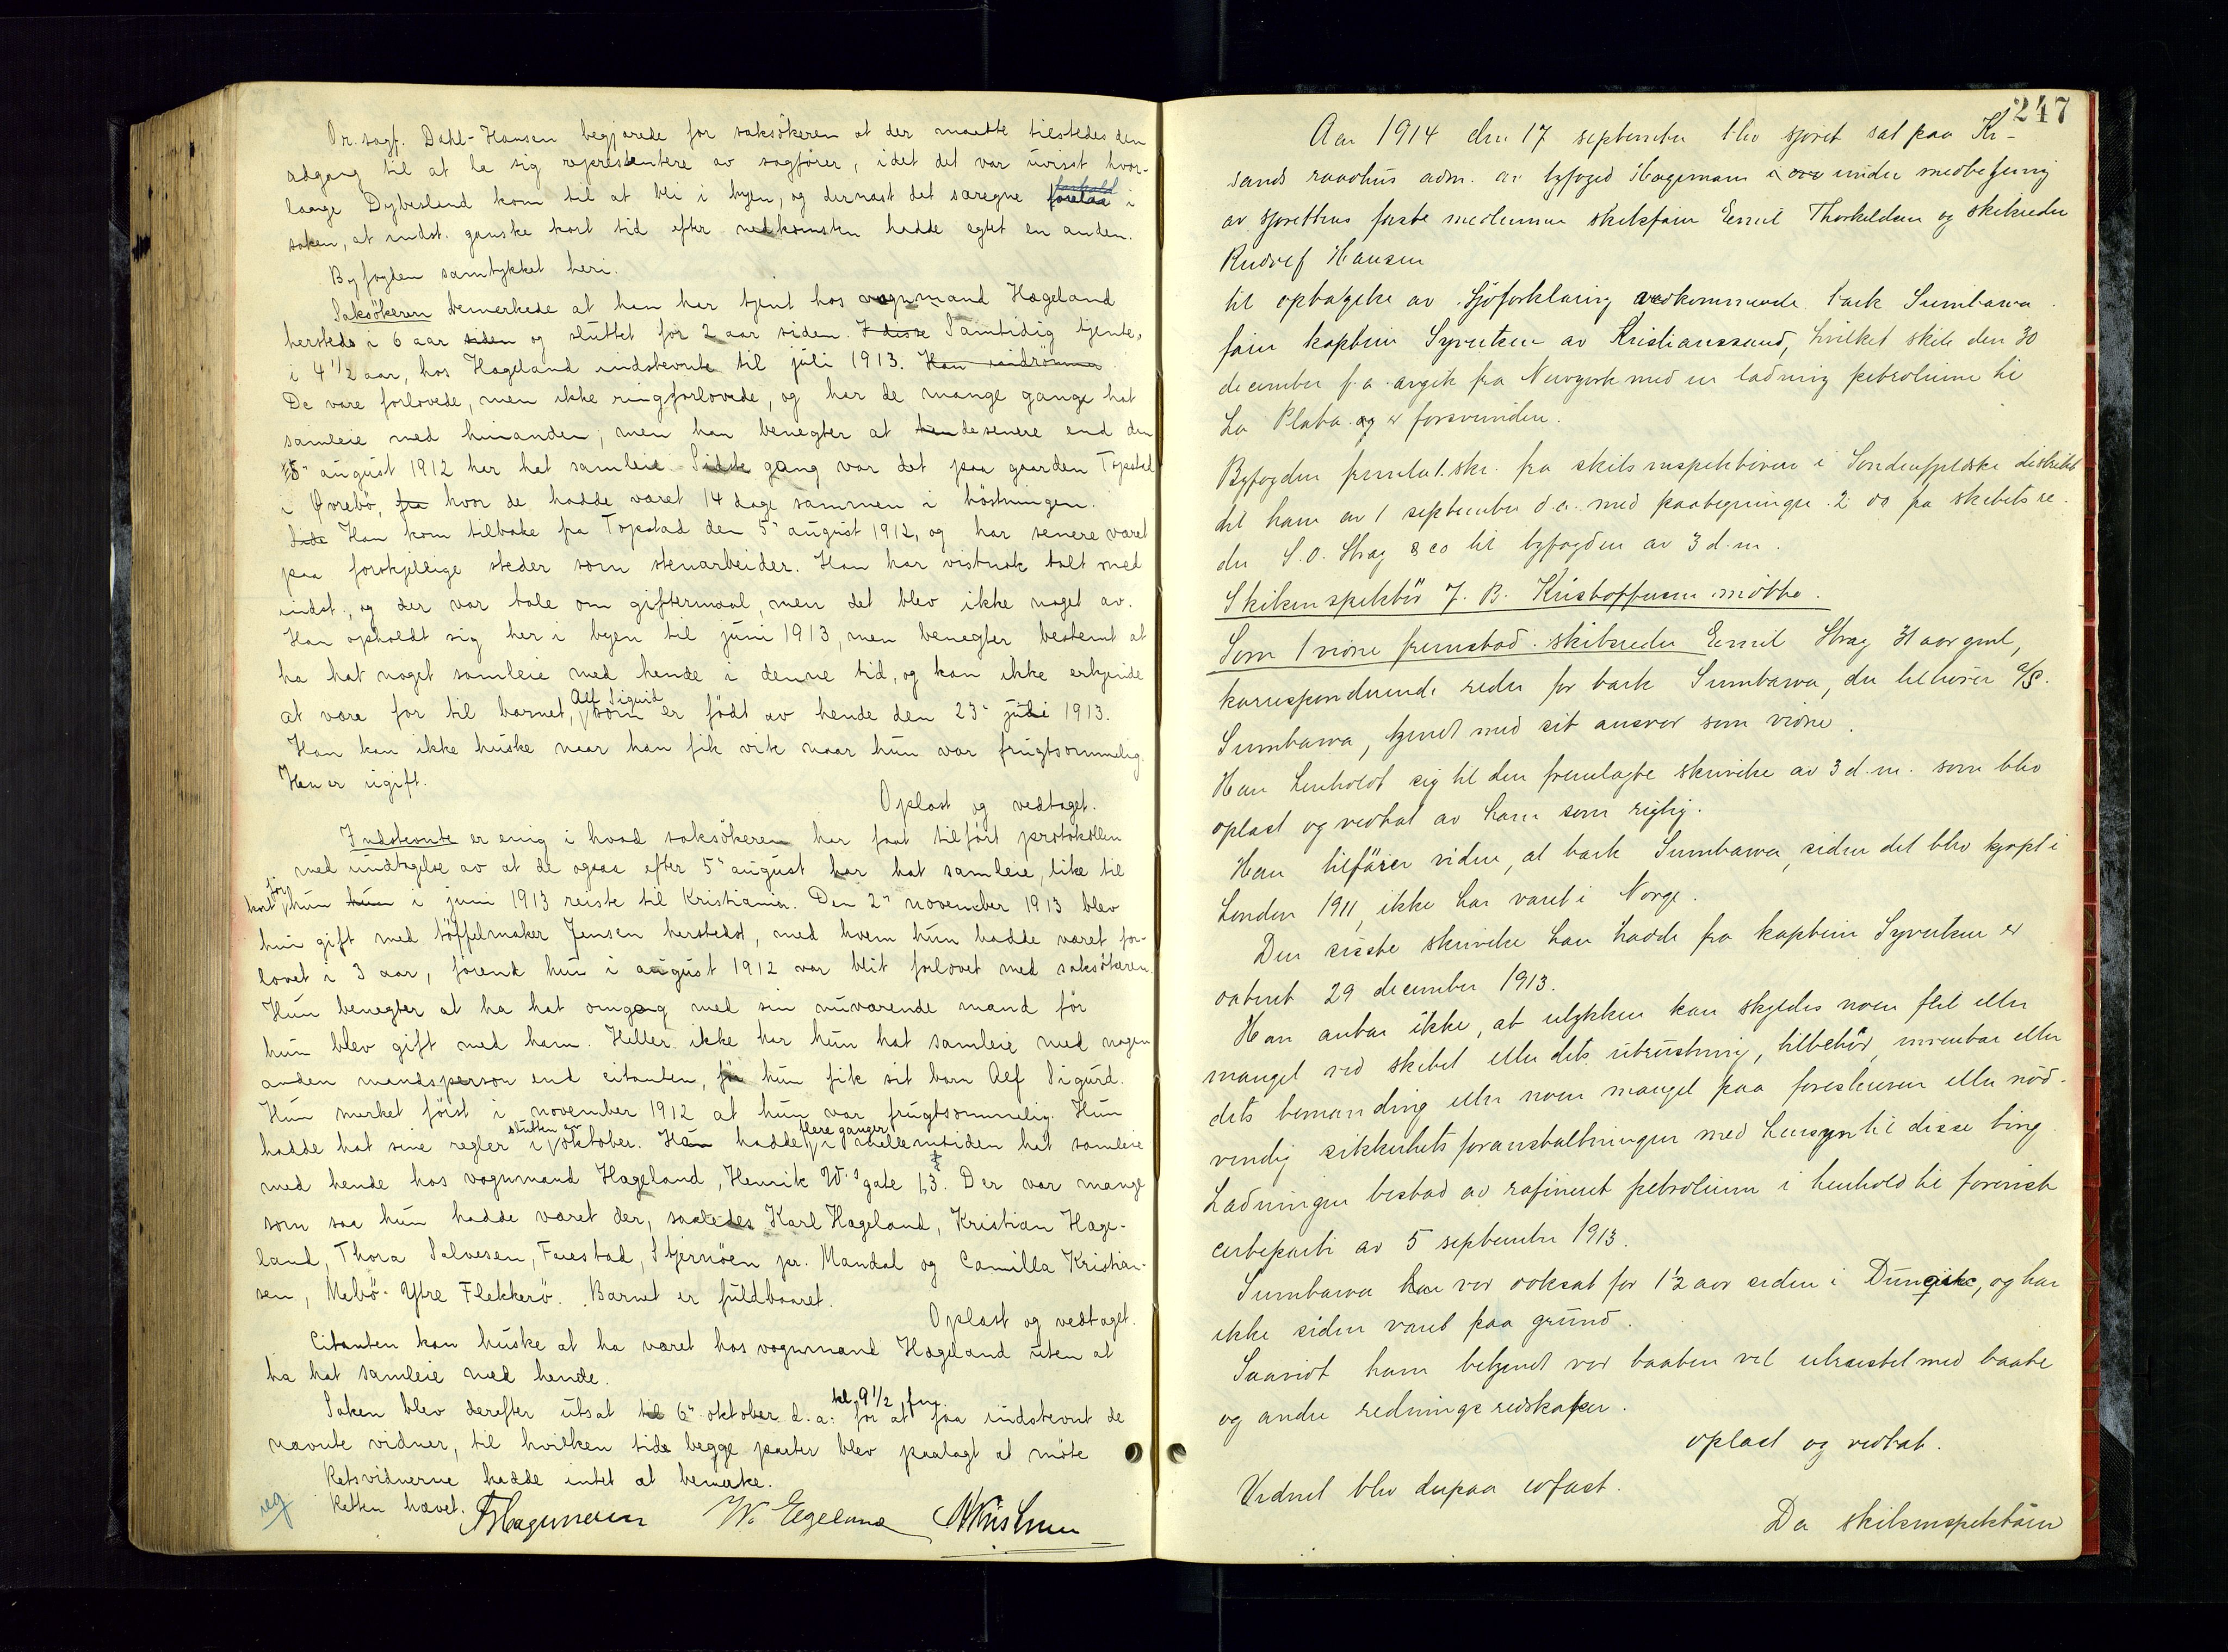 Or. sagf. Dahl-Hansen begjærede for saksökeren at der maatte tilstedes den
adgang til at la sig representere av sagförer, idet det var uvisst hvor-
længe Dybesland kom til at bli i byen, og dernæst det særegne forhold i
saken, at indst. ganske kort tid efter nedkomsten hadde egtet en anden.
Byfogden samtykket heri.
Saksökeren bemerkede at han har tjent hos vognmand Hægeland
hersteds i 6 aar siden og sluttet for 2 aar siden. I disse Samtidig tjente,
i 4 1/2 aar, hos Hægeland indstevnte til juli 1913. Han indrömmer
De vare forlovede, men ikke ringforlovede, og har de mange gange hat
samleie med hinanden; men han benegter at hun de senere end den
5te august 1912 har hat samleie. Sidste gang var det paa gaarden Topstad
i Øvrebö, fra hvor de hadde været 14 dage sammen i höstningen.
Sids Han kom tilbake fra Topstad den 5te august 1912, og har senere været
paa forskjellige steder som stenarbeider. Han har vistnok talt med
indst., og der var tale om giftermaal, men det blev ikke noget av.
Han opholdt sig her i byen til juni 1913, men benegter bestemt at
ha hat noget samleie med hende i denne tid, og kan ikke erkjende
Alf Sigurd
at være far til barnet, som er födt av hende den 23de juli 1913.
Han kan ikke huske naar han fik vite naar hun var frugtsommelig.
Han er ugift.
Oplæst og vedtaget.
Indstevnte er enig i hvad saksökeren har faat tilfört protokollen
med undtagelse av at de ogsaa efter 5te august har hat samleie, like til
kort för hun hun i juni 1913 reiste til Kristiania. Den 2den november 1913 blev
hun gift med töffelmaker Jensen herstedst, med hvem hun hadde været for-
lovet i 3 aar, förend hun i august 1912 var blit forlovet med saksökeren.
Hun benegter at ha hat omgang med sin nuværende mand för
hun blev gift med ham. Heller ikke har hun hat samleie med nogen
anden mandsperson end citanten, för hun fik sit barn Alf Sigurd.
Hun merket först i november 1912 at hun var frugtsommelig. Hun
slutten av flere ganger
hadde hat sine regler i oktober. Han hadde i mellemtiden hat samleie
med hende hos vognmand Hægeland, Henrik W.s gate 63. Der var mange
som saa hun hadde været der, saaledes Karl Hægeland, Kristian Hæge-
land, Thora Salvesen, Farestad, Stjernöen pr. Mandal og Camilla Kristian-
sen, Mebö- Ytre Flekkerö. Barnet er fuldbaaret.
Oplæst og vedtaget.
Citanten kan huske at ha været hos vognmand Hægeland uten at
ha hat samleie med hende.
kl. 9 1/2 fm.
Saken blev derefter utsat til 6te oktober d.a. for at faa indstevnt de
nævnte vidner, til hvilken tid begge parter blev paalagt at möte
Retsvidnerne hadde intet at bemerke.
Retten hævet.
reg
Hagemann W. Egeland
247
Aar 1914 den 17 september blev sjöret sat paa Kr-
sands raadhus adm. av byfoged Hagemann i ovr under medbetjening
av sjörettens faste medlemmer skibsförer Emil Thorkildsen og skibsreder
Rudolf Hansen
til optagelse av sjöforklaring vedkommende bark Sumbawa
förer kaptein Syvertsen av Kristianssand, hvilket skib den 30
december f.a. avgik fra Newyork med en ladning petroleum til
La Plata og er forsvunden.
Byfogden fremla 1. skr. fra skibsinspektören i Söndenfjeldske distrikt
til ham av 1 september d.a. med paategninger. 2 do fra skibets re-
der S. O. Stray & co til byfogden av 3 d.m.
Skibsinspektör J. B. Kristoffersen mötte.
Som 1 vidne fremstod skibsreder Emil Stray 31 aar gml,
korresponderende reder for bark Sumbawa, der tilhörer A/S.
Sumbawa, kjendt med sit ansvar som vidne.
Han henholdt sig til den fremlagte skrivelse av 3 d.m. som blev
oplæst og vedtat av ham som rigtig.
Han tilförer videre, at bark Sumbawa, siden det blev kjøpt i
London 1911, ikke har været i Norge.
Den sisste skrivelse han hadde fra kaptein Syvertsen er
dateret 29 december 1913.
Han antar ikke, at ulykken kan skyldes noen feil eller
mangel ved skibet eller dets utrustning, tilbehör, inventar eller
dets bemanding eller noen mangel paa foreskreven eller nöd-
vendig sikkerhetsforanstaltninger med hensyn til disse ting.
Ladningen bestod av rafineret petroleum i henhold til forevist
certeparti av 5 september 1913.
Sumbawa har var doksat for 1 1/2 aar siden i Dungike, og har
ikke siden været paa grund.
Saavidt ham bekjendt var baaten vel utrustet med baate
og andre redningsredskaper.
oplæst og vedtat.
Vidnet blev derpaa edfæst.
Da skibsinspektören